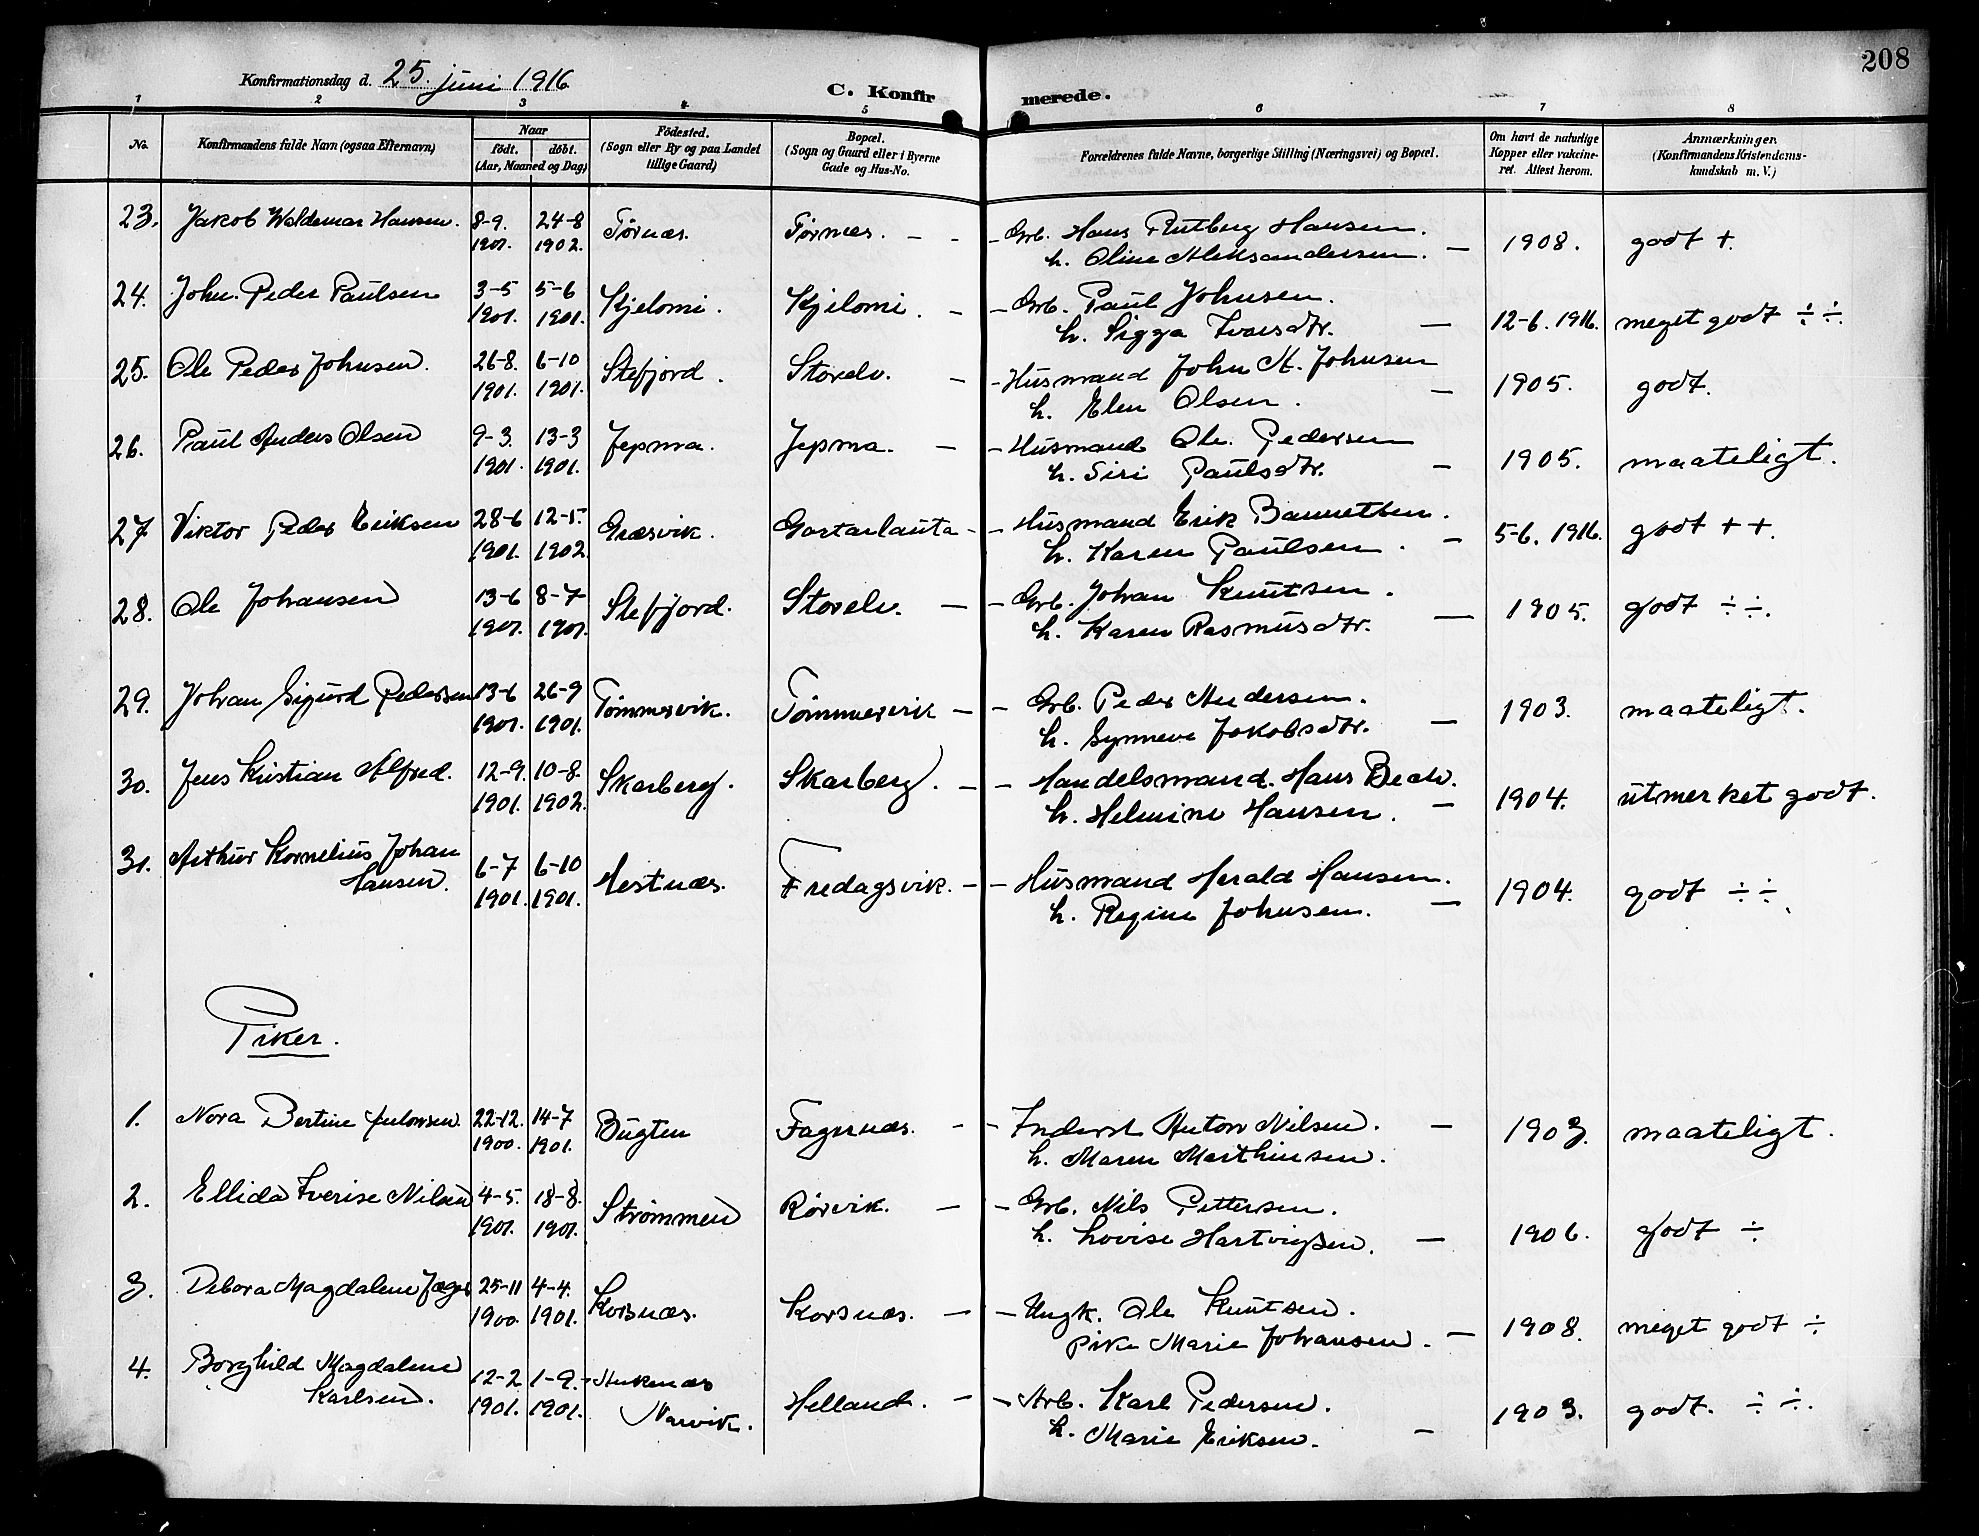 208
Konfirmationsdag d. 25. juni 1916
C. Konfirmerede.
1 2 3 4 5 6 7 8
No. | Konfirmandens fulde Navn (ogsaa Efternavn) | Naar født. døbt. (Aar, Maaned og Dag) | Fødested. (Sogn eller By og paa Landet tillige Gaard) | Bopæl. (Sogn og Gaard eller i Byerne Gade og Hus-No. | Forældrenes fulde Navne, borgerlige Stilling (Næringsvei) og Bopæl. | Om havt de naturlige Kopper eller vakcineret. Attest herom. | Anmærkninger. (Konfirmandens Kristendomskundskab m. V.)
23. Jakob Waldemar Hansen. 8-9. 24-8 Tørnæs. Tørnæs. - - - Grb. Hans Rutberg Hansen.
1901. 1902. h. Oline Aleksandersen. — 1908. godt +.
24. John. Peder Paulsen 3-5 5-6 Kjelomi. Kjelomi. - - Grb. Paul Johnsen.
1901. 1901. h. Sigga Ivarsdtr. — 12-6. 1916. meget godt ÷ ÷.
25. Ole Peder Johnsen. 26-8. 6-10 Stefjord. Storelv. - - Husmand John M. Johnsen
1901. 1901. h. Elen Olsen. — 1905. godt.
26. Paul Anders Olsen 9-3. 13-3 Jepma. Jepma. - - Husmand Ole. Pedersen
1901. 1901. h. Siri Paulsdtr. — 1905. maateligt.
27. Viktor Peder Eriksen 28-6 12-5. Græsvik. - - Husmand Erik
1901. 1902. h. Karen Paulsen. — 5-6. 1916. godt + +.
28. Ole Johansen 13-6 8-7 Stefjord. Storelv. - - Grb. Johan Knutsen.
1901. 1901. h. Karen Rasmusdtr. — 1905. godt ÷ ÷.
29. Johan Sigurd Pedersen 13-6 26-9 Tømmervik. Tømmervik - - Grb. Peder Andersen.
1901. 1901. h. Synneve Jakobsdtr. — 1903. maateligt.
30. Jens Kristian Alfred. 12-9. 10-8. Skarberg. Skarberg. - - Handelsmand. Hans Bech.
1901. 1902. h. Helmine Hansen. — 1904. utmerket godt.
31. Arthur Kornelius Johan
Hansen. 6-7 6-10 Hestnæs. Fredagsvik. - - Husmand Harald Hansen.
1901. 1901. h. Regine Johnsen. — 1904. godt ÷ ÷.
Piker.
1. Nora Bertine Antonsen. 22-12. 14-7 Bugten Fagernæs. - - Inderst Anton Nilsen. —
1900. 1901. h. Maren Marthinsen. 1903. maateligt.
2. Ellida Iverise Nilsen 4-5. 18-8. Strømmen Rørvik. - - Grb. Nils Pettersen.
1901. 1901. h. Lovise Hartvigsen. — 1906. godt ÷
3. Debora Magdalene Jæger 25-11 4-4. Korsnæs. Korsnæs. - - Ungk. Ole Knutsen.
1900. 1901. pike Marie Johansen. — 1908. meget godt ÷
4. Borghild Magdalene
Karlsen. 12-2 1-9. Ankenæs Helland. - - Arb. Karl Pedersen.
1901. 1901. Narvik. h. Marie Eriksen. — 1903. godt. ÷ ÷.